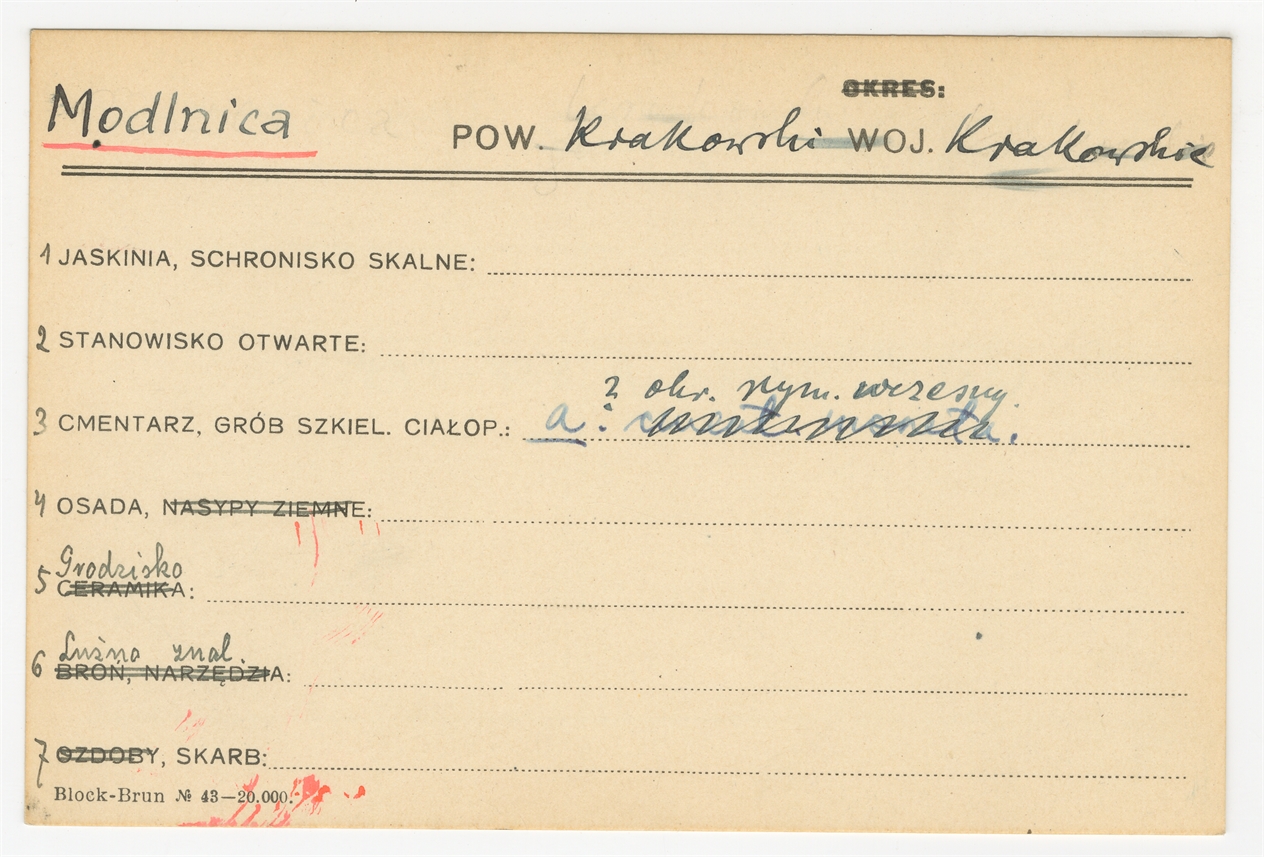 OKRES:
Modlnica POW. Krakowski WOJ. Krakowskie
1 JASKINIA, SCHRONISKO SKALNE:
2 STANOWISKO OTWARTE:
? okr. rzym. wczesny.
3 CMENTARZ, GRÓB SZKIEL. CIAŁOP.: a:
4 OSADA, NASYPY ZIEMNE:
Grodzisko
5 CERAMIKA:
Luźno znal.
6 BROŃ, NARZĘDZIA:
7 OZDOBY, SKARB:
Block-Brun № 43—20.000.